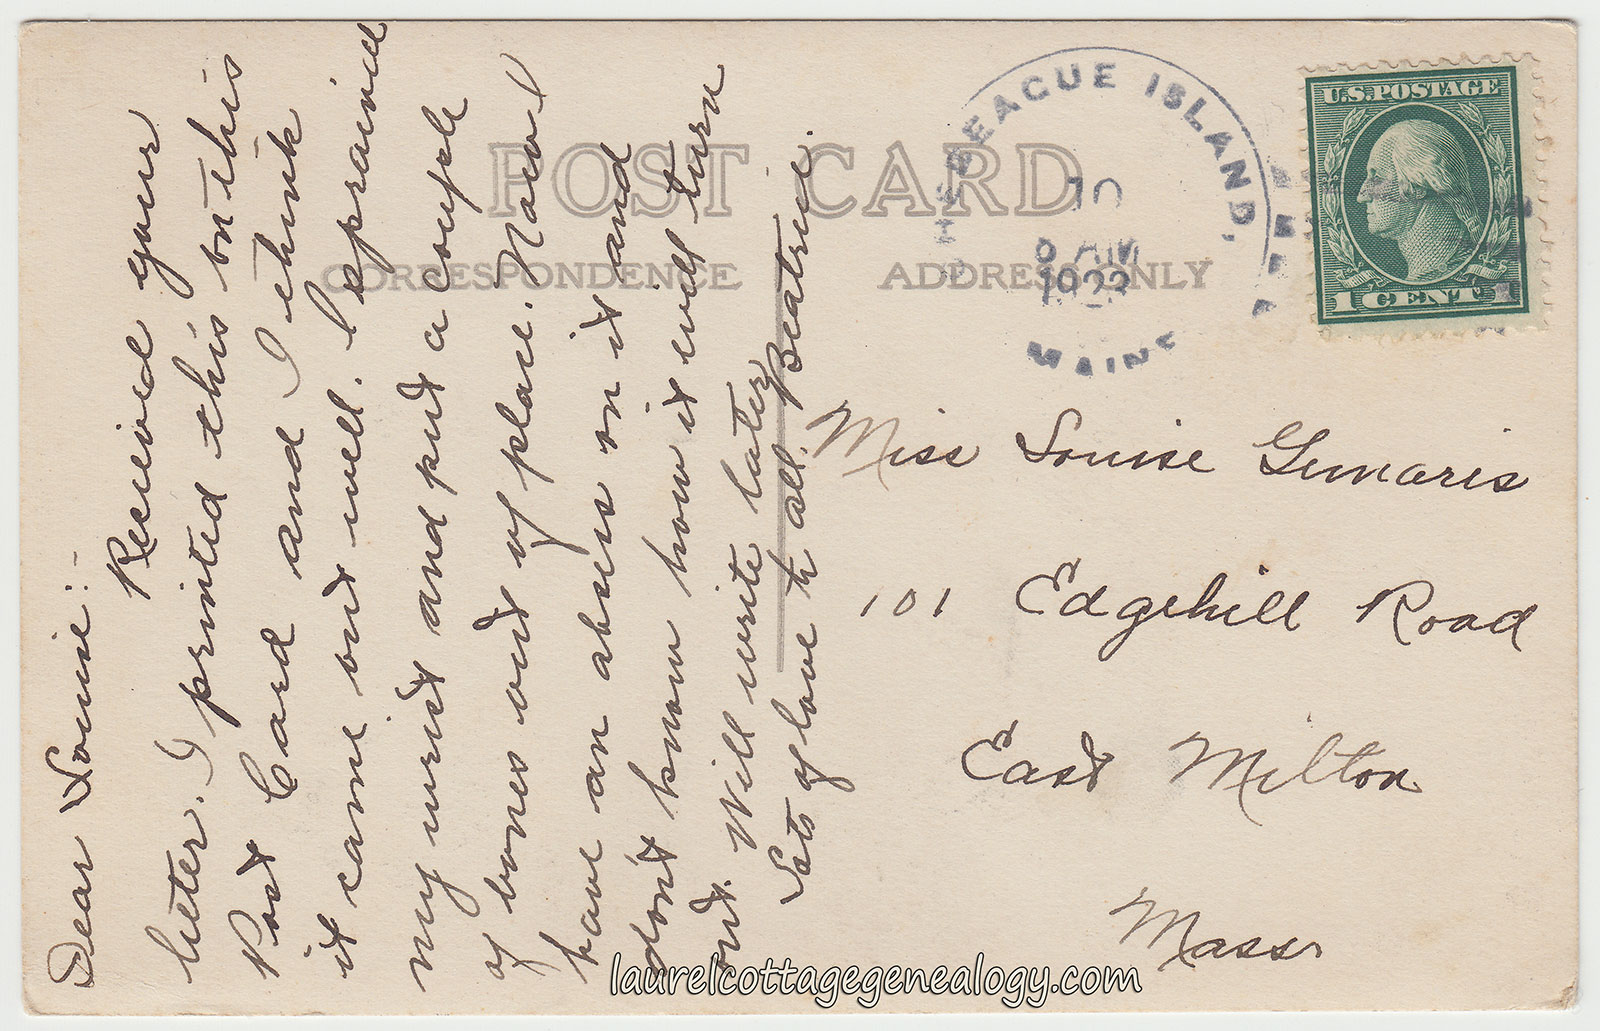 Dear Louise:-
Received your
letter. I printed this on this
Post Card and I think
it came out well. I sprained
my wrist and put a couple
of bones out of place. Now I
have an absess on it and
don't know how it will turn
out. Will write later
Lots of love to all. Beatrice.
POST CARD
CORRESPONDENCE
ADDRESS ONLY
CHEBEAGUE ISLAND,
10
AM
1922
MAINE
U.S. POSTAGE
1 CENT 1
Miss Louise Gumaris
101 Edgehill Road
East Milton
Mass
laurelcottagegenealogy.com